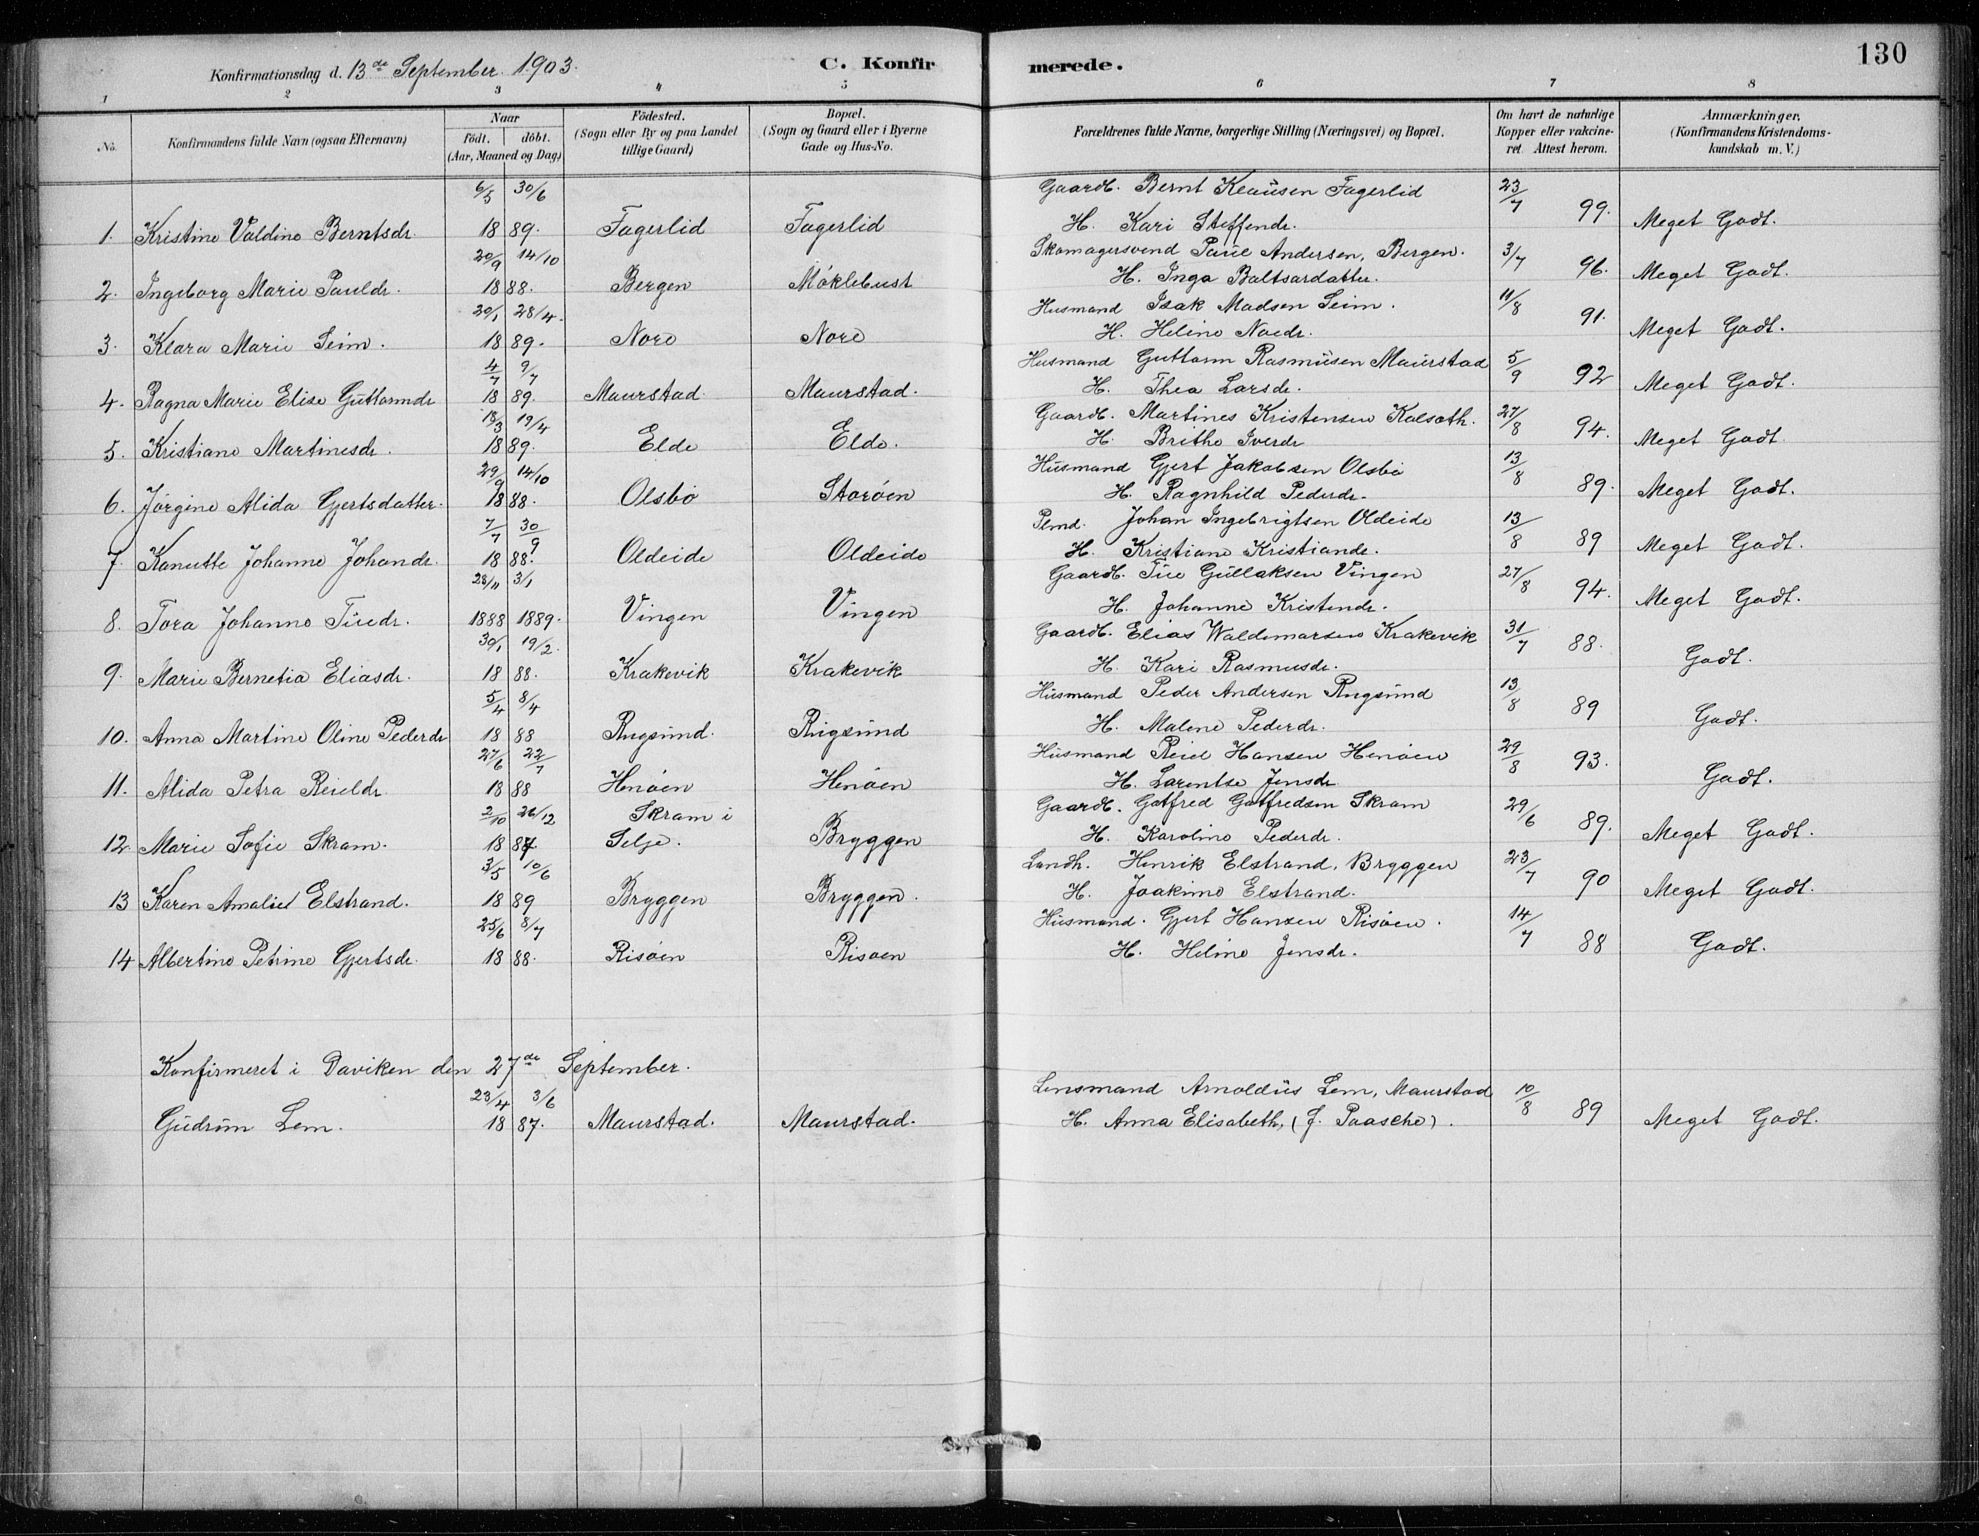 130
Konfirmationsdag d. 13de September 1903.
C. Konfirmerede.
1 2 3 4 5 6 7 8
No. Konfirmandens fulde Navn (ogsaa Efternavn) Naar födt. döbt. (Aar, Maaned og Dag) Födested. (Sogn eller By og paa Landet tillige Gaard) Bopæl. (Sogn og Gaard eller i Byerne Gade og Hus-No. Forældrenes fulde Navne, borgerlige Stilling (Næringsvei) og Bopæl. Om havt de naturlige Kopper eller vakcineret. Attest herom. Anmærkninger, (Konfirmandens Kristendomskundskab m. V.)
6/5 30/6 Gaardb. Bernt Klausen Fagerlid 23/7
1. Kristine Valdine Berntsdr. 1889. Fagerlid Fagerlid H. Kari Steffendr. 99. Meget Godt.
20/9 14/10 Skomagersvend Paul Andersen, Bergen. 3/7
2. Ingeborg Marie Pauldr. 1888. Bergen Möklebust H. Inga Baltsardatter. 96. Meget Godt.
20/1 28/4. Husmand Isak Madsen Seim. 11/8
3. Klara Marie Seim. 1889. Nore Nore H. Heline Noedr. 91. Meget Godt.
4/7 9/7 Husmand Guttorm Rasmusen Maurstad 5/9
4. Ragna Marie Elise Guttormdr 1889. Maurstad. Maurstad. H. Thea Larsdr. 92 Meget Godt.
13/3 19/4 Gaardb. Martines Kristensen Kalsath. 27/8
5. Kristiane Martinesdr. 1889. Elde Elde. H. Brithe Iverdr 94. Meget Godt.
29/9 14/10 Husmand Gjert Jakobsen Olsbö 13/8
6. Jörgine Alida Gjertsdatter. 1888. Olsbö Storöen H. Ragnhild Pederdr. 89. Meget Godt.
7/7 30/9 Plmd. Johan Ingebrigtsen Oldeide 13/8
7. Kanutte Johanne Johandr. 1888. Oldeide Oldeide H. Kristiane Kristiandr. 89 Meget Godt.
28/11 3/1 Gaardb. Tue Gullaksen Vingen 27/8
8. Tora Johanne Tuedr. 1888 1889. Vingen Vingen H. Johanne Kristendr. 94. Meget Godt.
30/1 19/2. Gaardb. Elias Waldemarsen Krakevik 31/7
9. Marie Bernetia Eliasdr. 1888. Krakevik Krakevik H. Kari Rasmusdr. 88. Godt.
5/4 8/4 Husmand Peder Andersen Rugsund 13/8
10. Anna Martine Oline Pederdr 1888 Rugsund. Rugsund H. Malene Pederdr. 89 Godt.
27/6 22/7 Husmand Reiel Hansen Henöen 29/8
11. Alida Petra Reieldr. 1888 Henöen Henöen H. Larentse Jensdr 93. Godt.
2/10 26/12 Skram i Gaardb. Gotfred Gotfredsen Skram 29/6
12 Marie Sofie Skram. 1887 Selje. Bryggen H. Karoline Pederdr. 89. Meget Godt.
3/5 10/6 Landh. Henrik Elstrand, Bryggen 23/7
13 Karen Amalie Elstrand. 1889 Bryggen Bryggen. H. Joakime Elstrand. 90 Meget Godt.
25/6 8/7 Husmand. Gjert Hansen Risöen. 14/7
14 Albertine Petrine Gjertsdr. 1888. Risöen Risöen H. Heline Jensdr. 88 Godt.
Konfirmeret i Daviken den 27de September.
23/4 3/6 Lensmand Arnoldus Lem, Maurstad 10/8
Gudrun Lem. 1887. Maurstad. Maurstad. H. Anna Elisabeth, (f. Paasche). 89 Meget Godt.